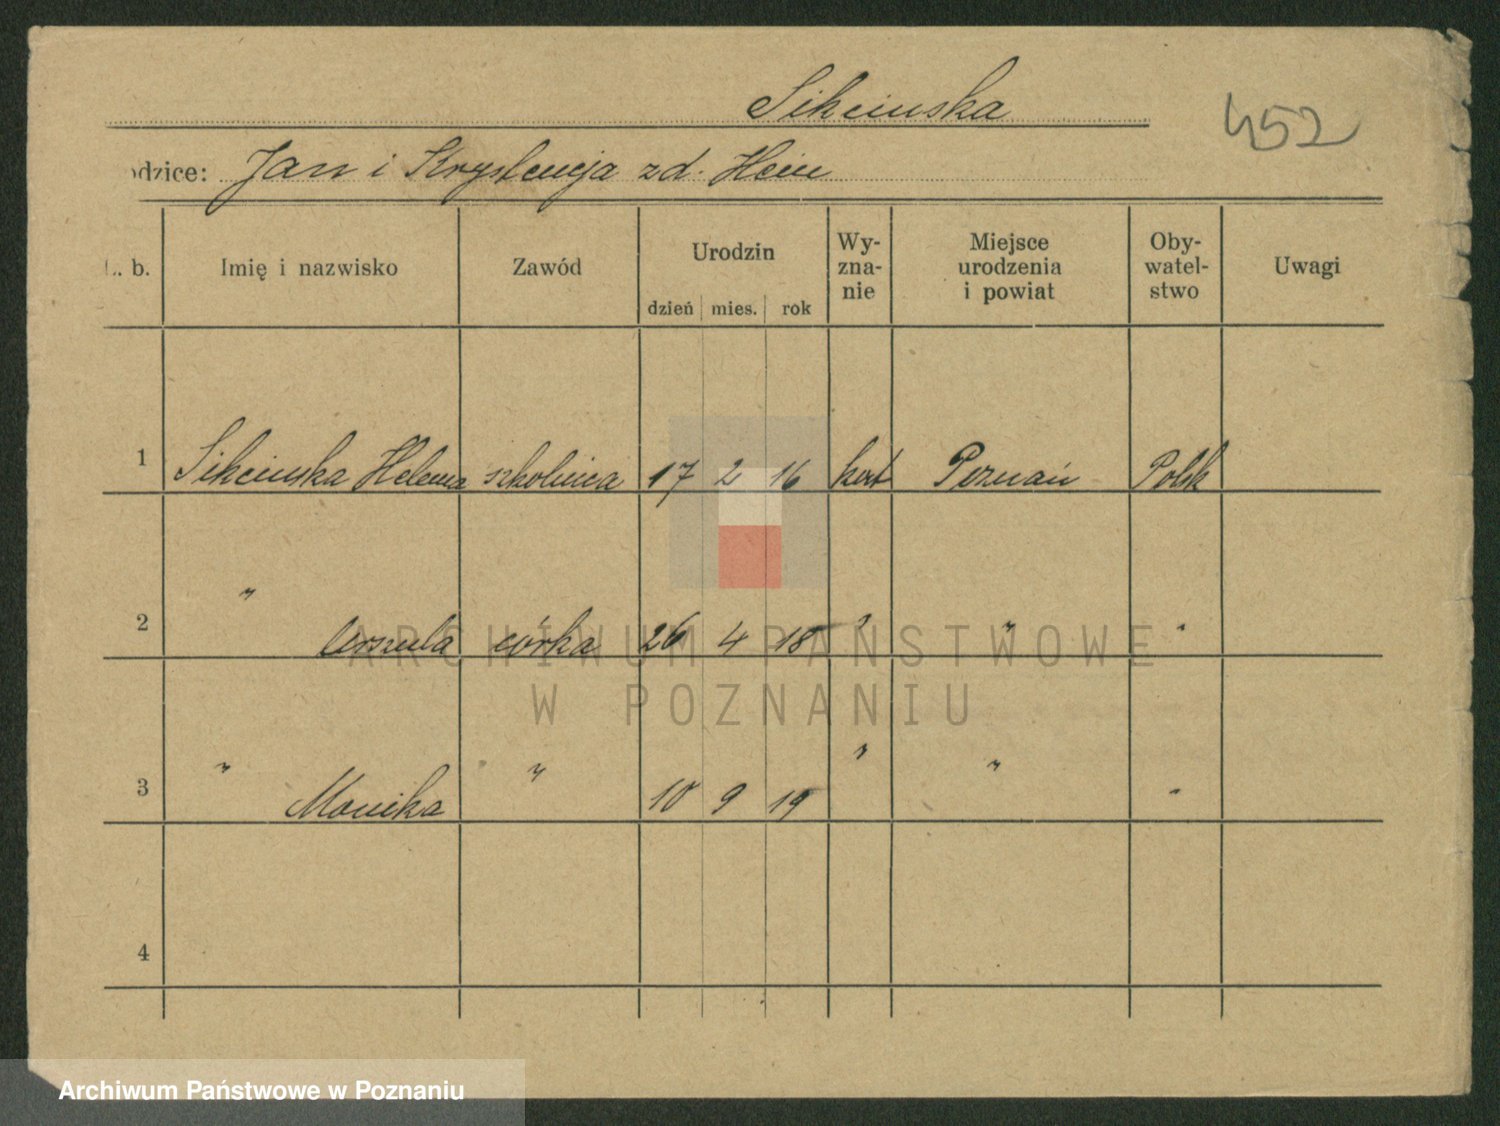 Sikcinska
452
odzice: Jan i Krystencja zd. Hein
L. b. Imię i nazwisko Zawód Urodzin dzień mies. rok Wy-zna-nie Miejsce urodzenia i powiat Oby-watel-stwo Uwagi
1 Sikcinska Helena szkolnica 17 2 16 kat Poznań Polsk
2 " Urszula córka 26 4 18 " " "
3 " Monika " 10 9 19 " " "
4
ARCHIWUM PAŃSTWOWE
W POZNANIU
Archiwum Państwowe w Poznaniu